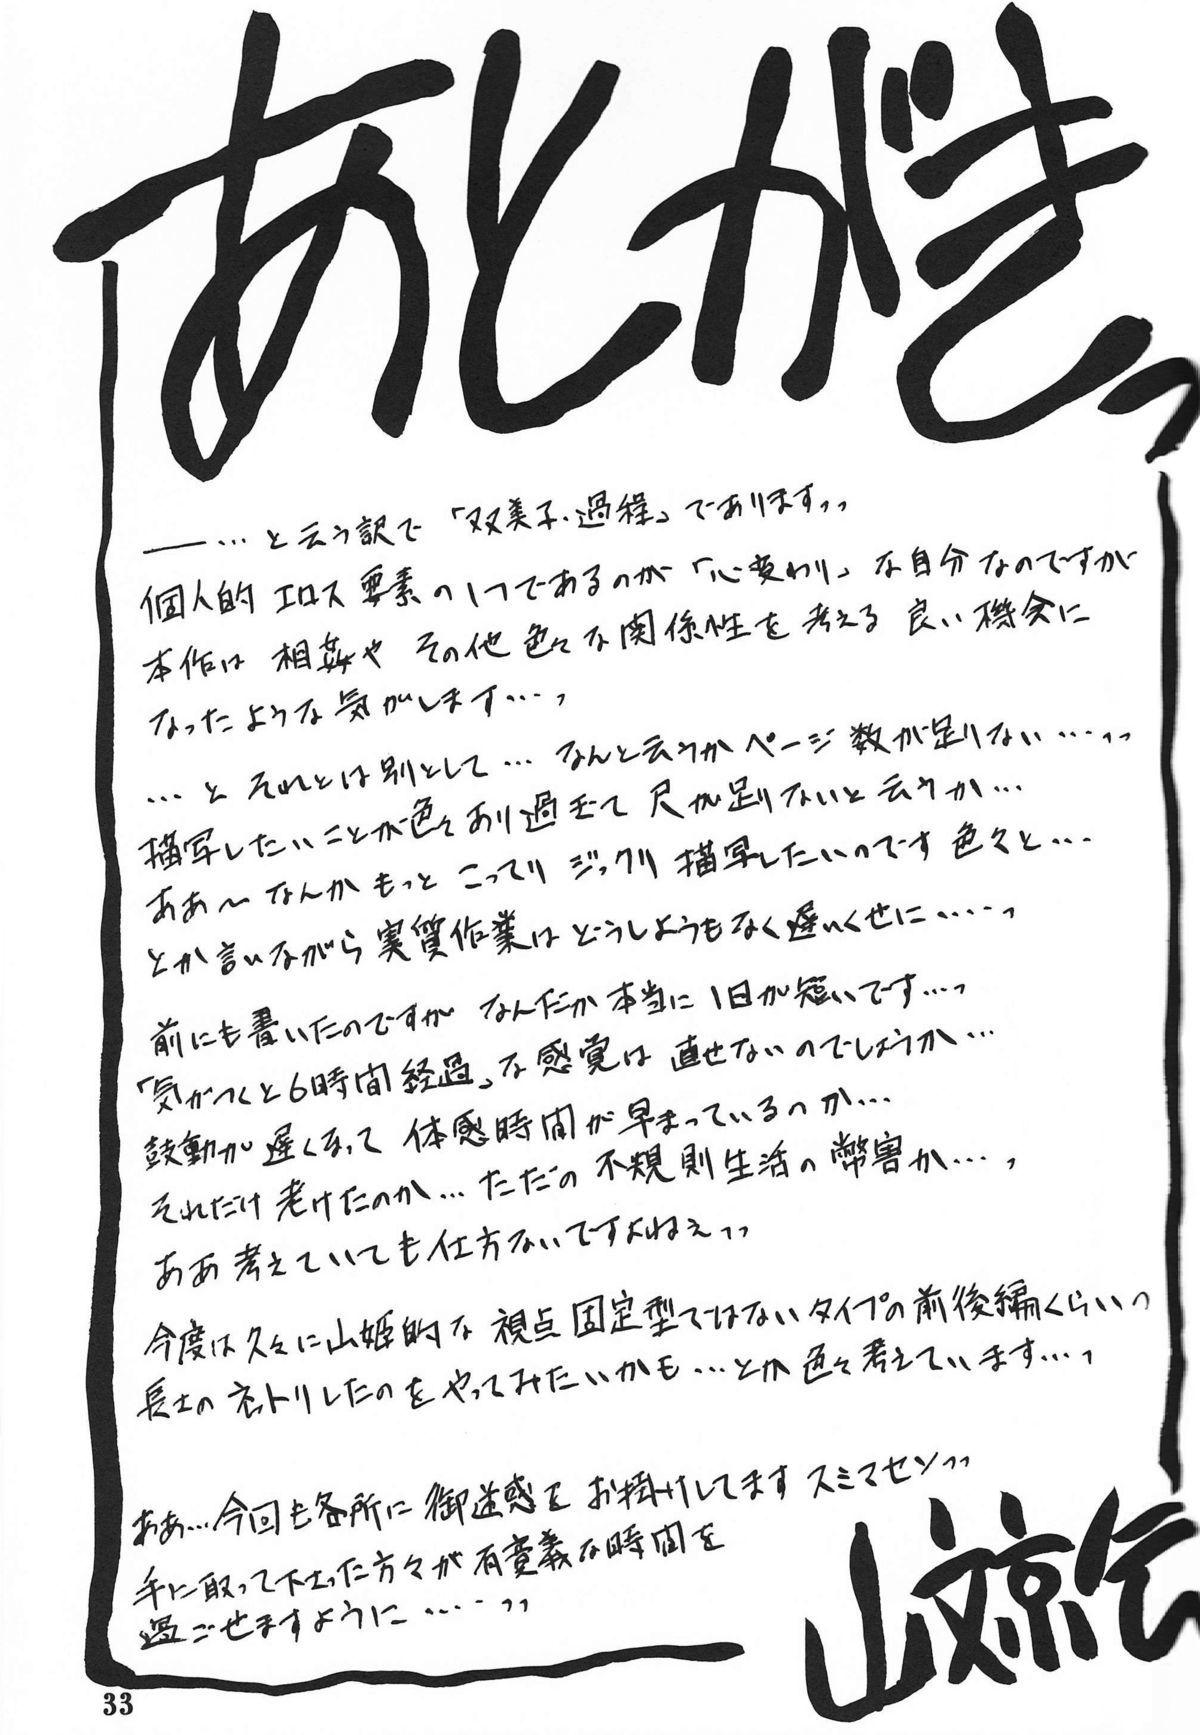 あとがきっ
──…と云う訳で「双美子・過程」でありますっっ
個人的エロス要素の1つであるのが「心変わり」な自分なのですが
本作は 相姦や その他色々な関係性を考える良い機会に
なったような気がします…っ
…と それとは別として…なんと云うかページ数が足りない…っっ
描写したいことが色々あり過ぎて尺が足りないと云うか…
ああ～なんかもっとこってりジックリ描写したいのです色々と…
とか言いながら実質作業はどうしようもなく遅いくせに……っ
前にも書いたのですがなんだか本当に1日が短いです…っ
「気がつくと6時間経過」な感覚は直せないのでしょうか…
鼓動が遅くなって体感時間が早まっているのか…
それだけ老けたのか…ただの不規則生活の弊害か…っ
ああ考えていても仕方ないですよねぇっっ
今度は久々に山姫的な視点固定型ではないタイプの前後編くらいっ
長士の ネトリしたのをやってみたいかも…とか色々考えています…っ
ああ…今回も各所に御迷惑をお掛けしてますスミマセンっっ
手に取って下さった方々が有意義な時間を
過ごせますように……っっ
山文京伝
33